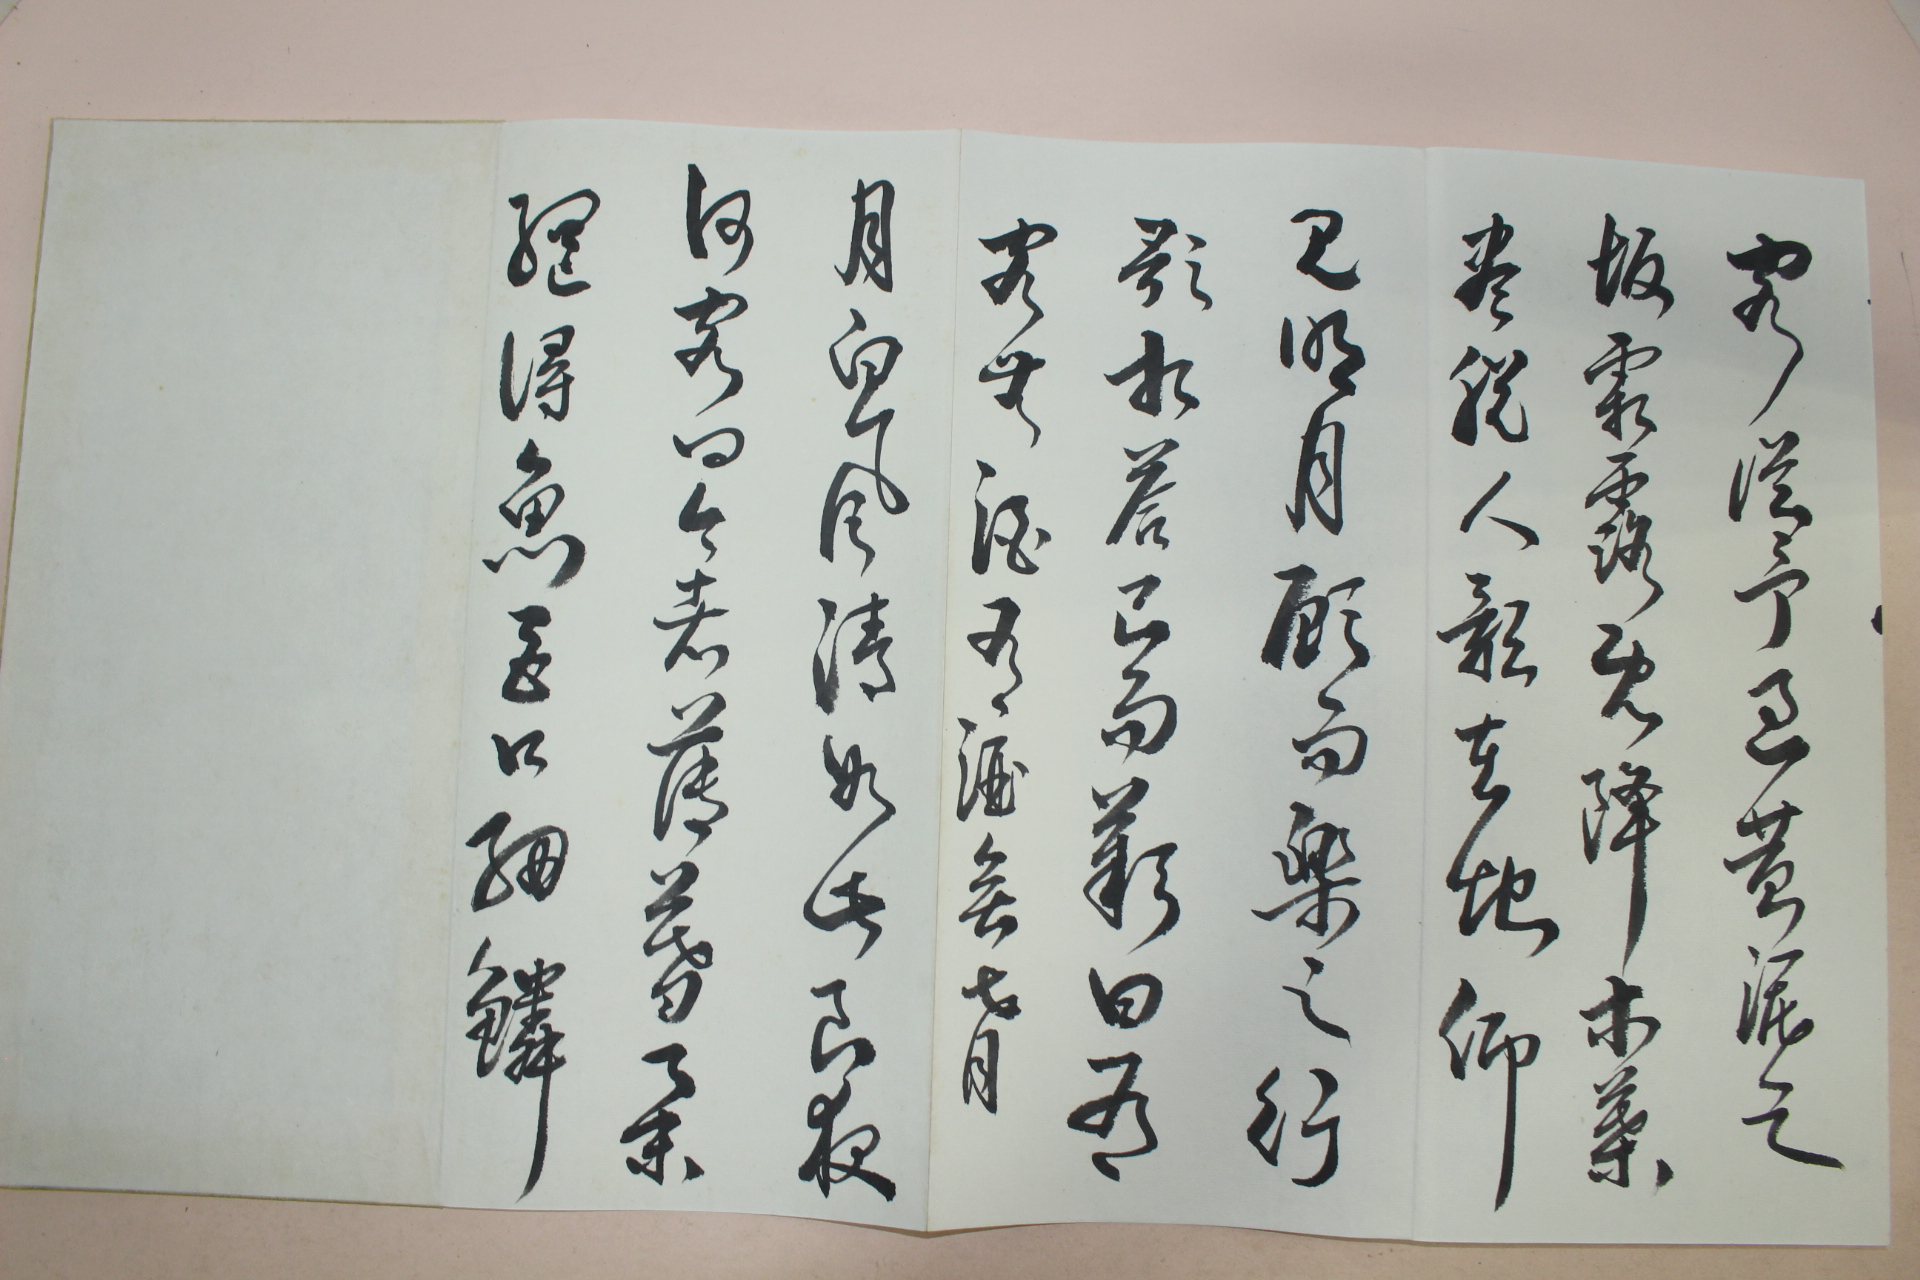 客從予過黃泥之
坂霜露既降木葉
盡脫人影在地仰
見明月顧而樂之行
歌相答已而歎曰有
客無酒有酒無肴
月白風清如此良夜
何客曰今者薄暮舉
網得魚巨口細鱗